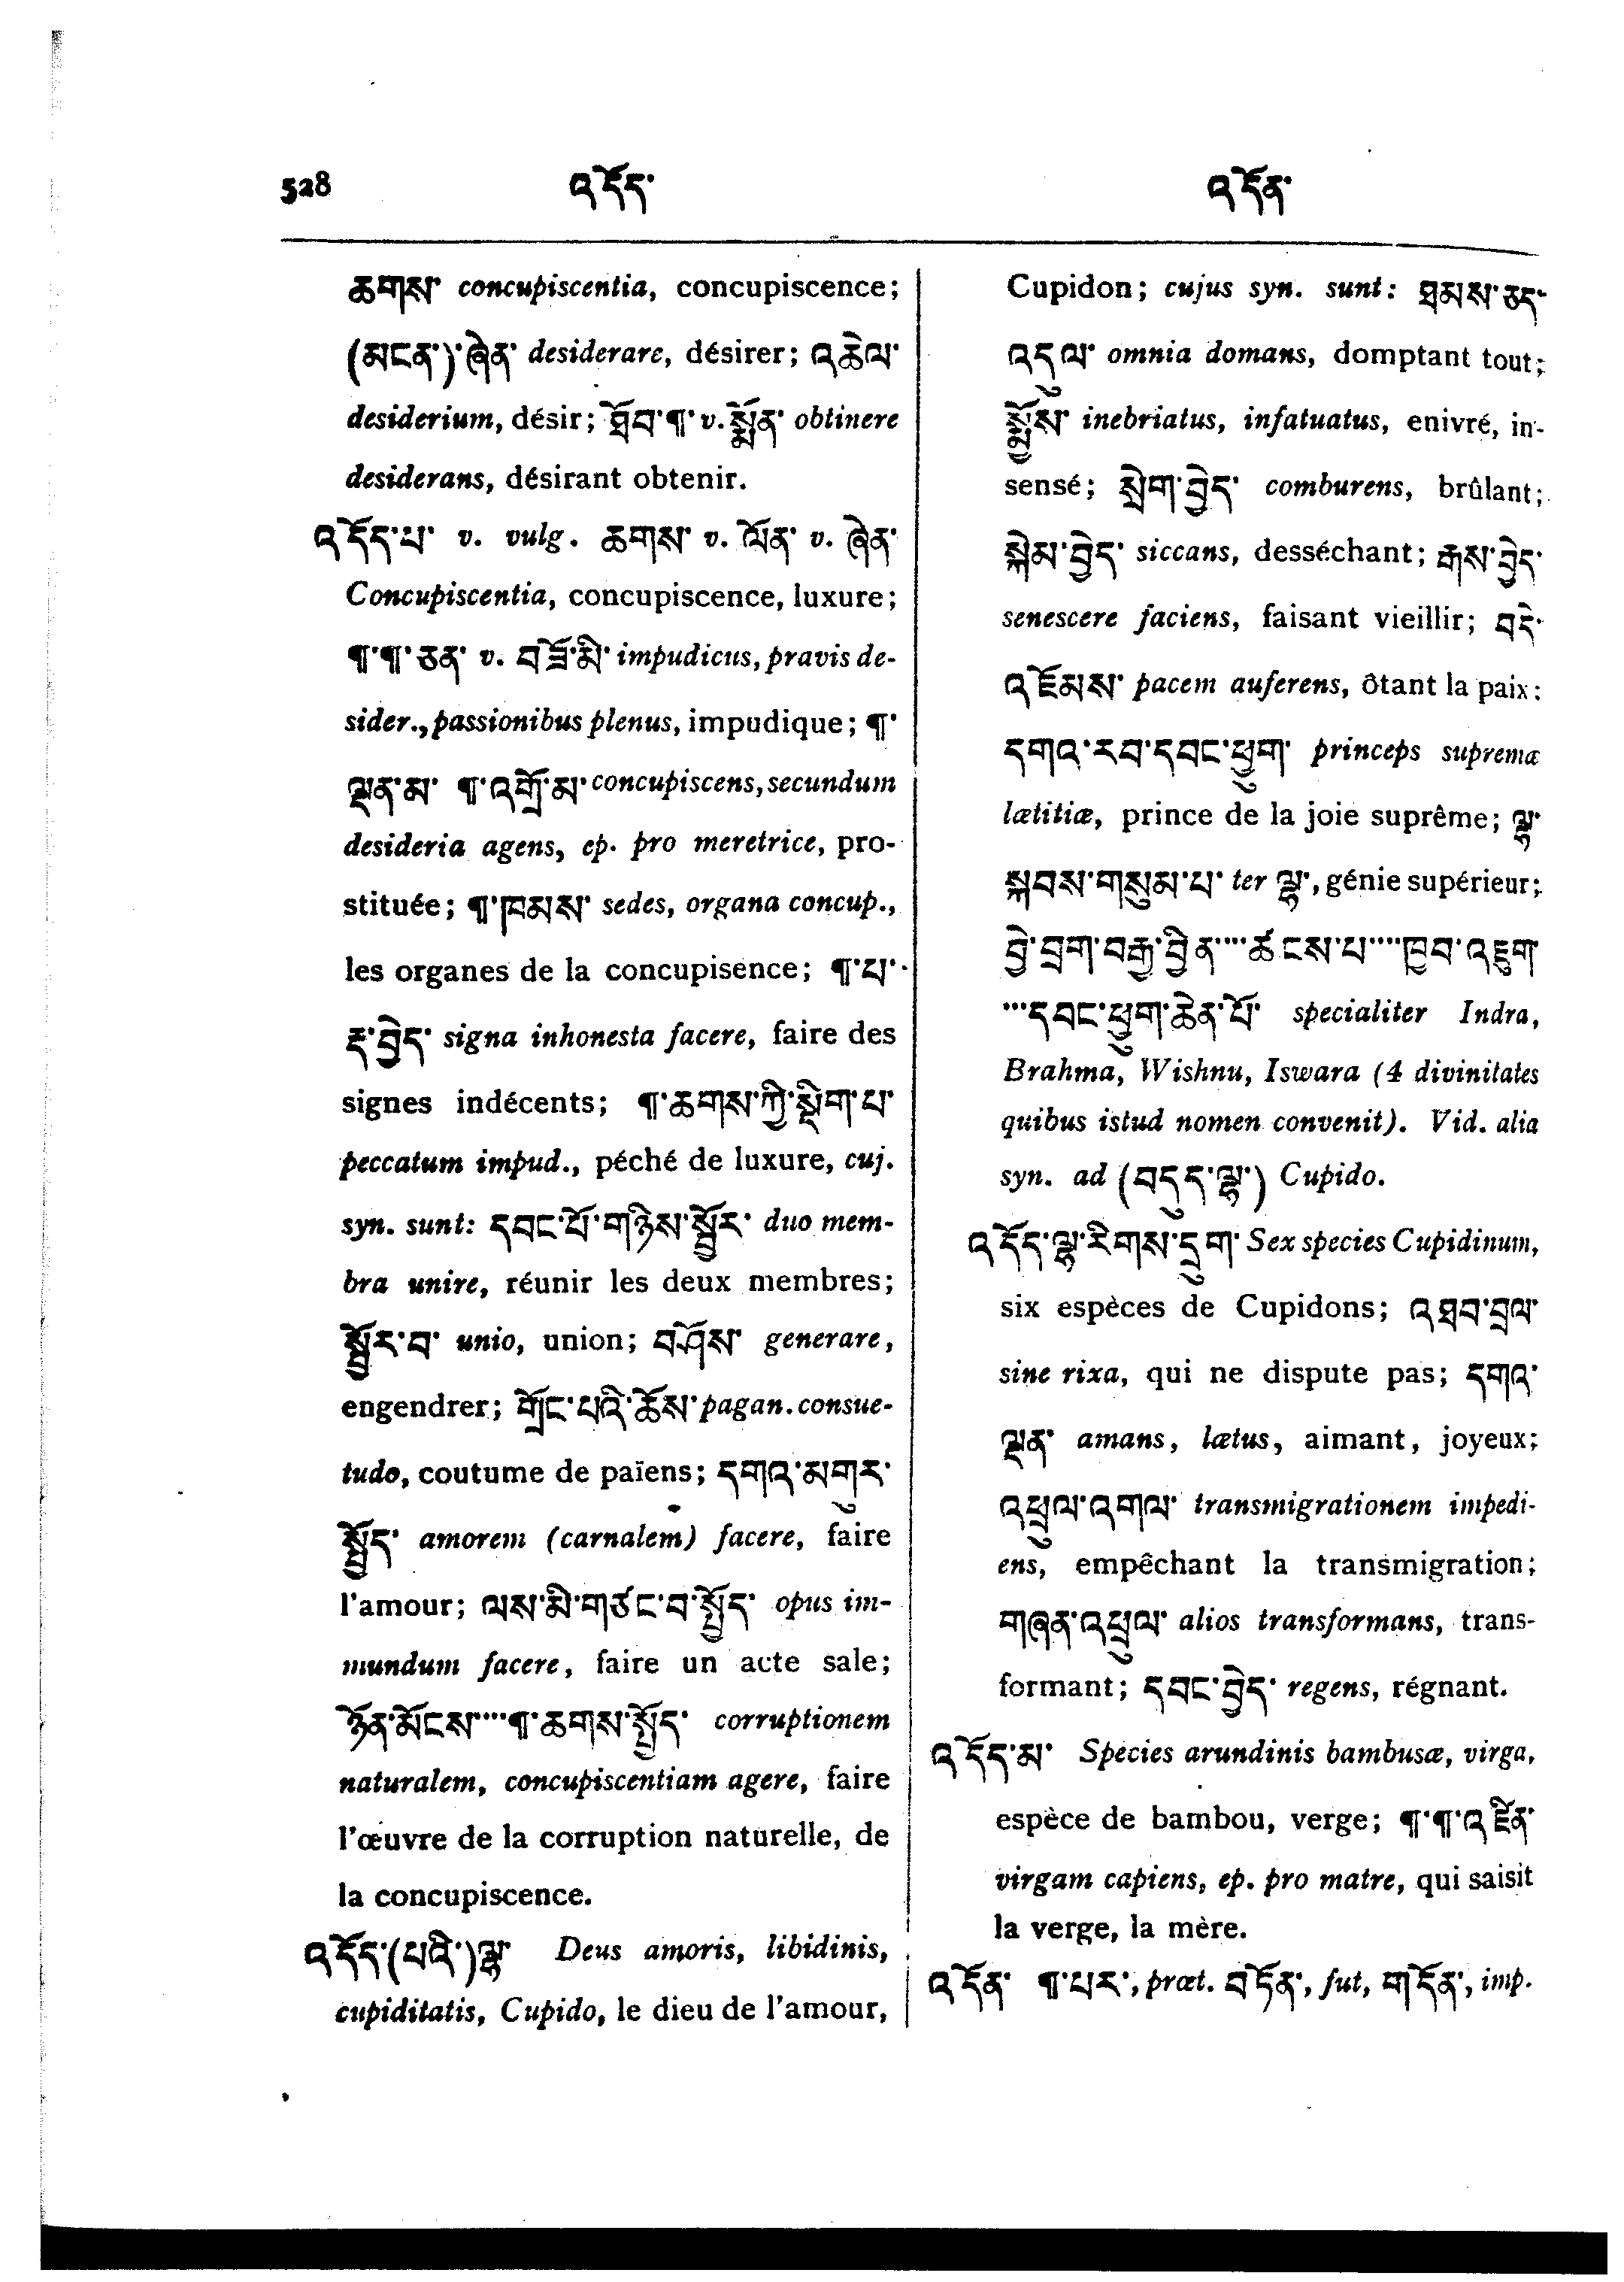 528
འདོད་
འདོན་
ཆགས་ concupiscentia, concupiscence;
(མངན་)་ཞེན་ desiderare, désirer; འཆེལ་
desiderium, désir; ཐོབ་¶་ v. སྨོན་ obtinere
desiderans, désirant obtenir.
འདོད་པ་ v. vulg. ཆགས་ v. ལོན་ v. ཞེན་
Concupiscentia, concupiscence, luxure;
¶་¶་ཅན་ v. བཟོ་མི་ impudicus, pravis de-
sider., passionibus plenus, impudique; ¶་
ལྡན་མ་ ¶་འགྲོ་མ་ concupiscens, secundum
desideria agens, ep. pro meretrice, pro-
stituée; ¶་ཁམས་ sedes, organa concup.,
les organes de la concupisence; ¶་པ་
རྡ་བྱེད་ signa inhonesta facere, faire des
signes indécents; ¶་ཆགས་ཀྱི་སྡིག་པ་
peccatum impud., péché de luxure, cuj.
syn. sunt: དབང་པོ་གཉིས་སྦྱོར་ duo mem-
bra unire, réunir les deux membres;
སྦྱོར་བ་ unio, union; བཤོས་ generare,
engendrer; གྲོང་པའི་ཆོས་ pagan. consue-
tudo, coutume de païens; དགའ་མགུར་
སྤྱོད་ amorem (carnalem) facere, faire
l'amour; ལས་མི་གཙང་བ་སྤྱོད་ opus im-
mundum facere, faire un acte sale;
ཉོན་མོངས་····¶་ཆགས་སྤྱོད་ corruptionem
naturalem, concupiscentiam agere, faire
l'œuvre de la corruption naturelle, de
la concupiscence.
འདོད་(པའི་)ལྷ་ Deus amoris, libidinis,
cupiditatis, Cupido, le dieu de l'amour,
Cupidon; cujus syn. sunt: ཐམས་ཅད་
འདུལ་ omnia domans, domptant tout;
སྨྱོས་ inebriatus, infatuatus, enivré, in-
sensé; སྲེག་བྱེད་ comburens, brûlant;
སྐེམ་བྱེད་ siccans, desséchant; རྒས་བྱེད་
senescere faciens, faisant vieillir; བདེ་
འཇོམས་ pacem auferens, ôtant la paix:
དགའ་རབ་དབང་ཕྱུག་ princeps supremæ
lætitiæ, prince de la joie suprême; ལྷ་
སྐབས་གསུམ་པ་ ter ལྷ་, génie supérieur;
བྱེ་བྲག་བརྒྱ་བྱིན་····ཚངས་པ་····ཁྱབ་འཇུག་
···དབང་ཕྱུག་ཆེན་པོ་ specialiter Indra,
Brahma, Wishnu, Iswara (4 divinitates
quibus istud nomen convenit). Vid. alia
syn. ad (བདུད་ལྷ་) Cupido.
འདོད་ལྷ་རིགས་དྲུག་ Sex species Cupidinum,
six espèces de Cupidons; འཐབ་བྲལ་
sine rixa, qui ne dispute pas; དགའ་
ལྡན་ amans, lætus, aimant, joyeux;
འཕྲུལ་འགལ་ transmigrationem impedi-
ens, empêchant la transmigration;
གཞན་འཕྲུལ་ alios transformans, trans-
formant; དབང་བྱེད་ regens, régnant.
འདོད་མ་ Species arundinis bambusæ, virga,
espèce de bambou, verge; ¶་¶་འཛིན་
virgam capiens, ep. pro matre, qui saisit
la verge, la mère.
འདོན་ ¶་པར་, præt. བཏོན་, fut, གདོན་, imp.